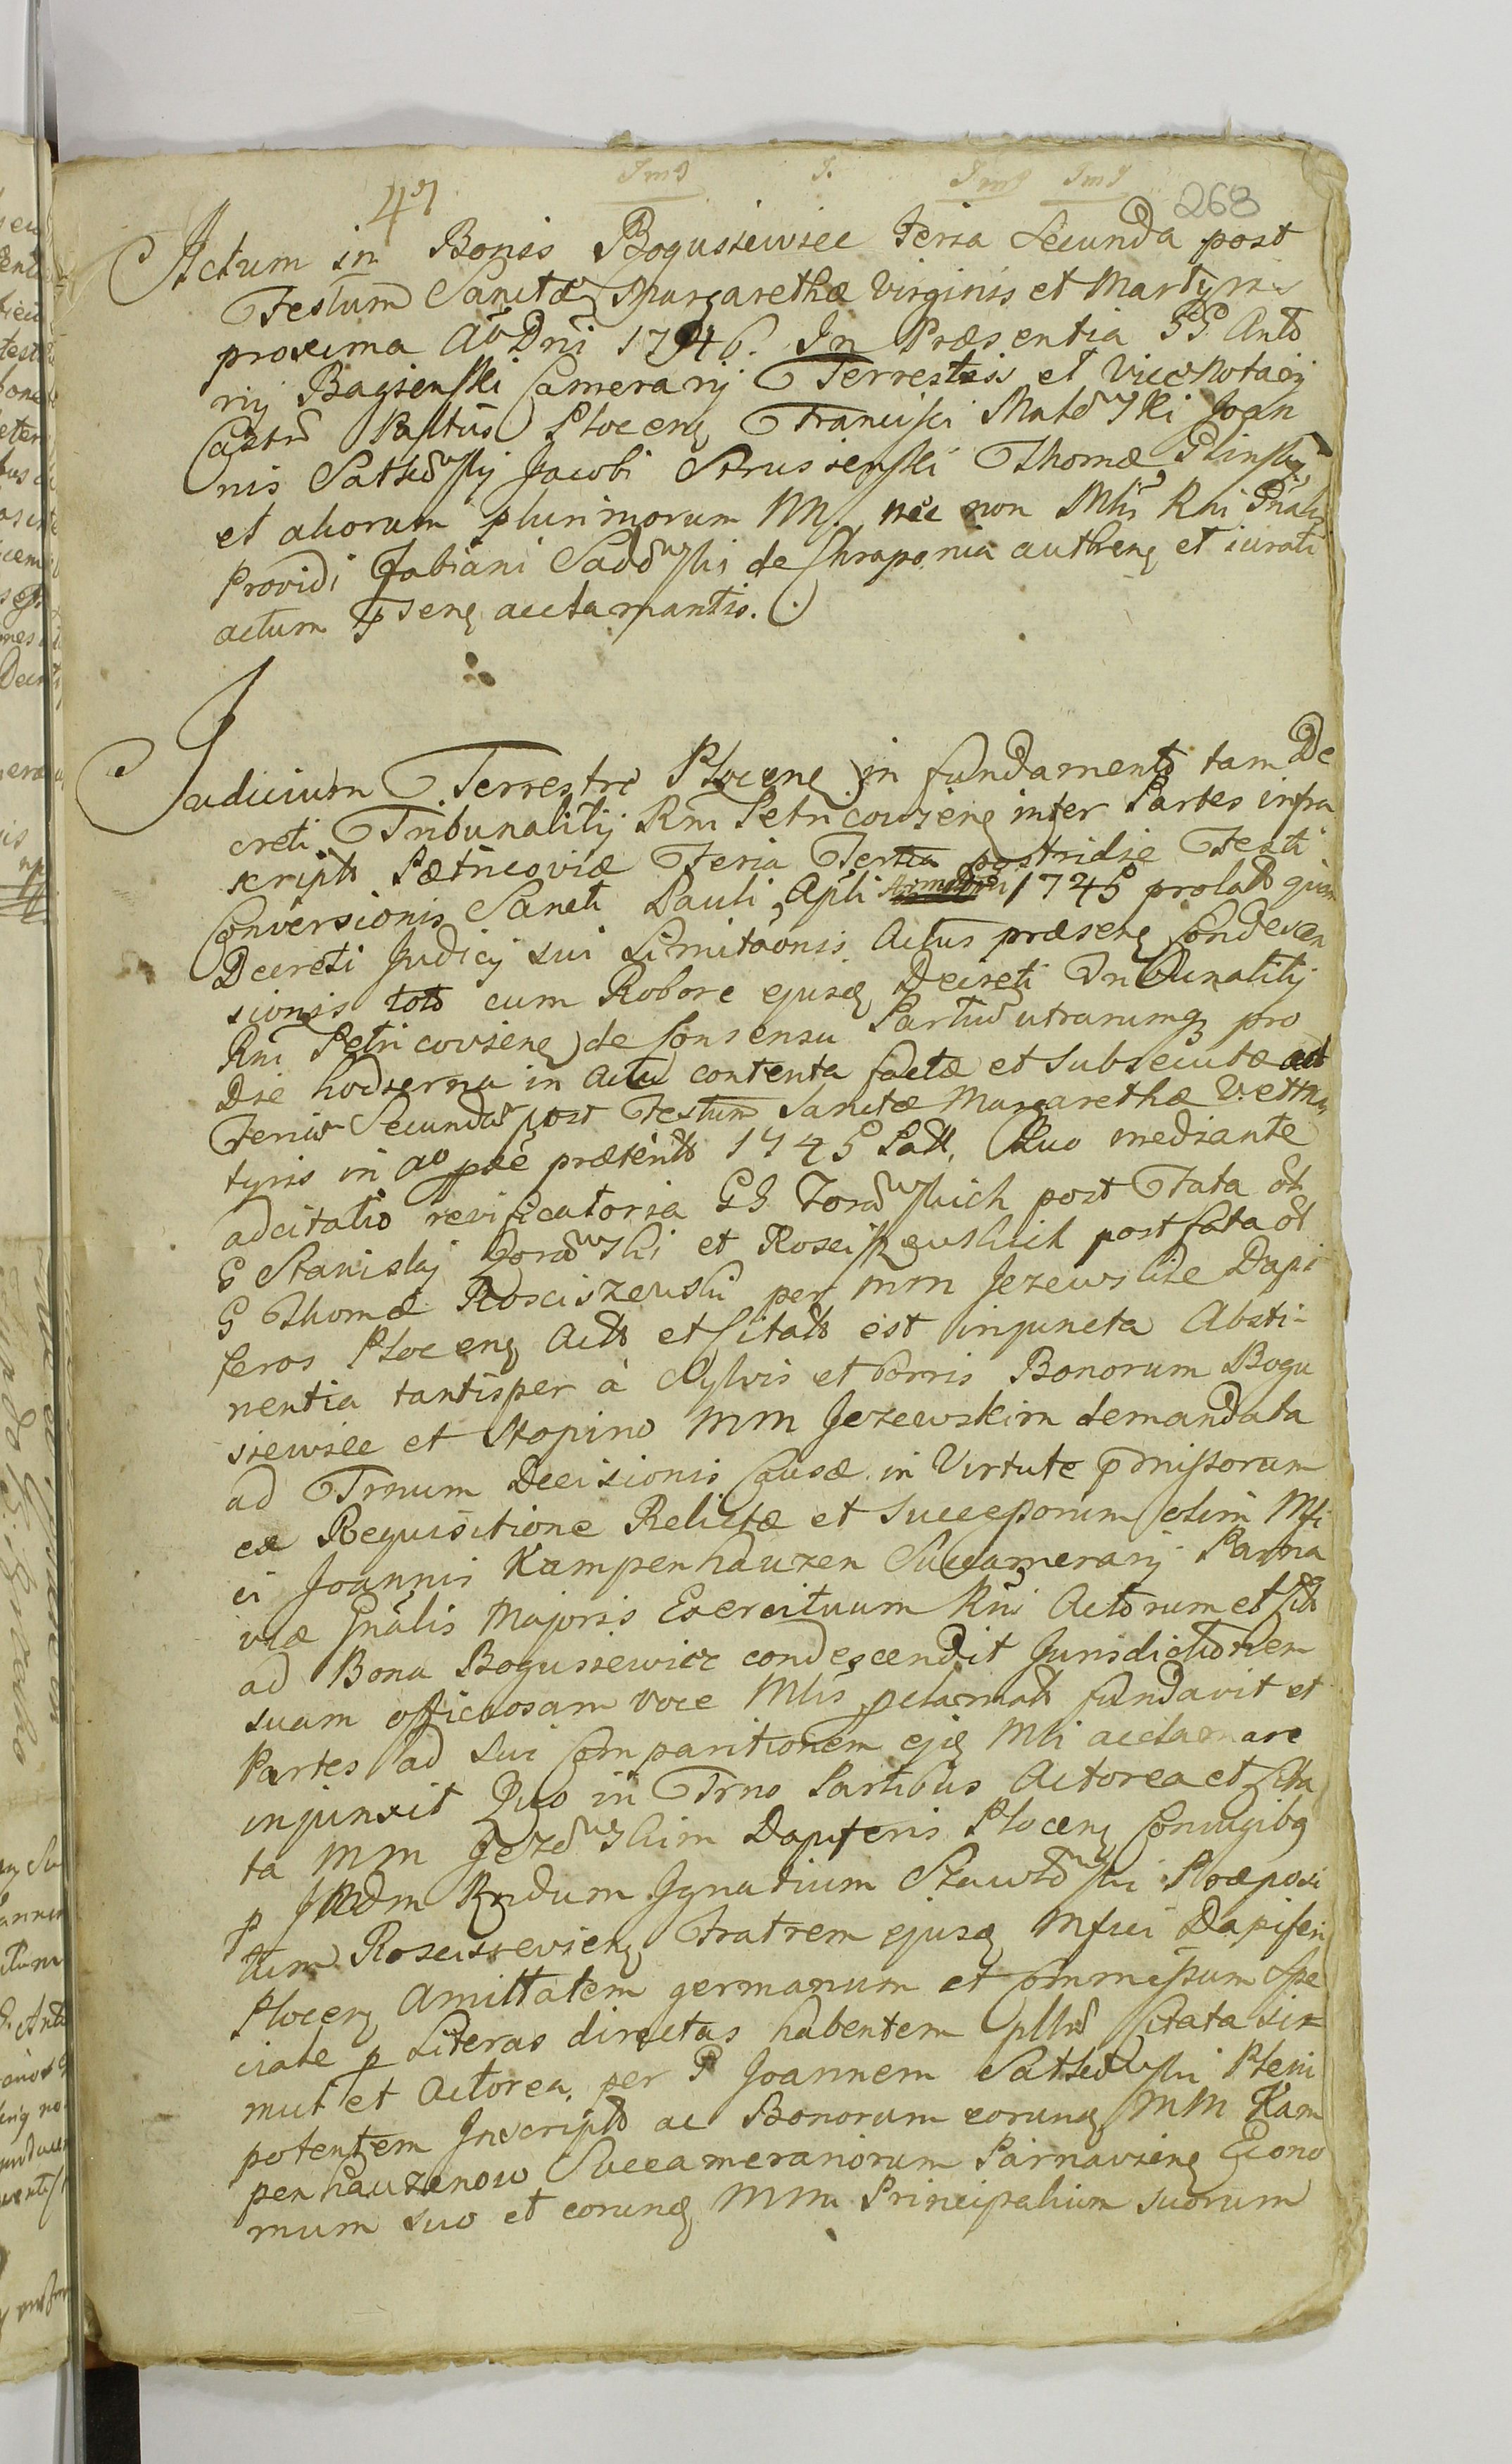 47
268
Actum in Bonis Bogusiewice Feria Secunda post
Festum Sanctæ Margarethæ Virginis et Martyris
proxima Ao Dni 1746. In Præsentia GG Anto
nij Bagienski Camerarij Terrestris et Vice Notarij
Castr Pltus Plocen Francisci Makowski Joan
nis Satkowskj Jacobi Strusienski Thomæ Glinskj
et aliorum plurimorum MM. nec non Mlis Rni Gnalis
Providi Fabiani Sadowski de Chraponia authen et iurati
actum psen acclamantis.
Judicium Terrestre Plocen in fundamento tam De
creti Tribunalitij Rni Petricovien inter Partes infra
scripts Pætricoviæ Feria Tertia postridie Festi
Conversionis Sancti Pauli Apli 1745 prolato quam
Decreti Judicij sui Limitaonis Actus præsen Condescen
sionis toto cum Robore ejusd Decreti Tribunalitij
Rni Petricovien de Consensu Partiu utrarumq pro
Die hodierna in Actu contenta factæ et subsecutæ
Feria Secunda post Festum Sanctæ Margarethæ V. et Mar
tyris in Ao præterito 1745 Quo mediante
adcitatio revificatoria GG Gorowskich post Fata ol
G Stanislaj Gorowski et Rosciszewskich post fata ol
G Thomæ Rosciszewski per MM Jezewskie Dapi
feros Plocen Acto et Citato est injuncta Absti-
nentia tantisper à Sylvis et borris Bonorum Bogu
siewice et Stopino MM Jezewskim demandata
ad Trnum Decisionis Causæ in Virtute præmissorum
ex Requisitione Relictæ et Successorum olim Mfi
ci Joannis Kampenhauzen Succamerarij Parna
viæ Gnalis Majoris Exercituum Rni Actorum et Cit
ad Bona Bogusiewice condescendit Jurisdictionem
suam officiosam voce Mlis pclamato fundavit et
Partes ad sui Comparitionem ejd Mli acclamare
injunxit Quo in Trno Partibus Actorea et Cita
ta MM Jezowskim Dapiferis Plocen Conjugibq
p Rndum Ignatium Szawlowski Præposi
tum Rosciszevien Fratrem ejusd Mfici Dapiferi
Plocen Amittalem germanum et Commissum Spe
ciale p Literas directas habentem Citata si-
mul et Actorea, per G Joannem Satkowski Pleni
potentem Inscripto ac Bonorum eorund MM Kam
penhauzenow Succamerariorum Parnavien Econo
mum suo et eorund MM Principalium suorum